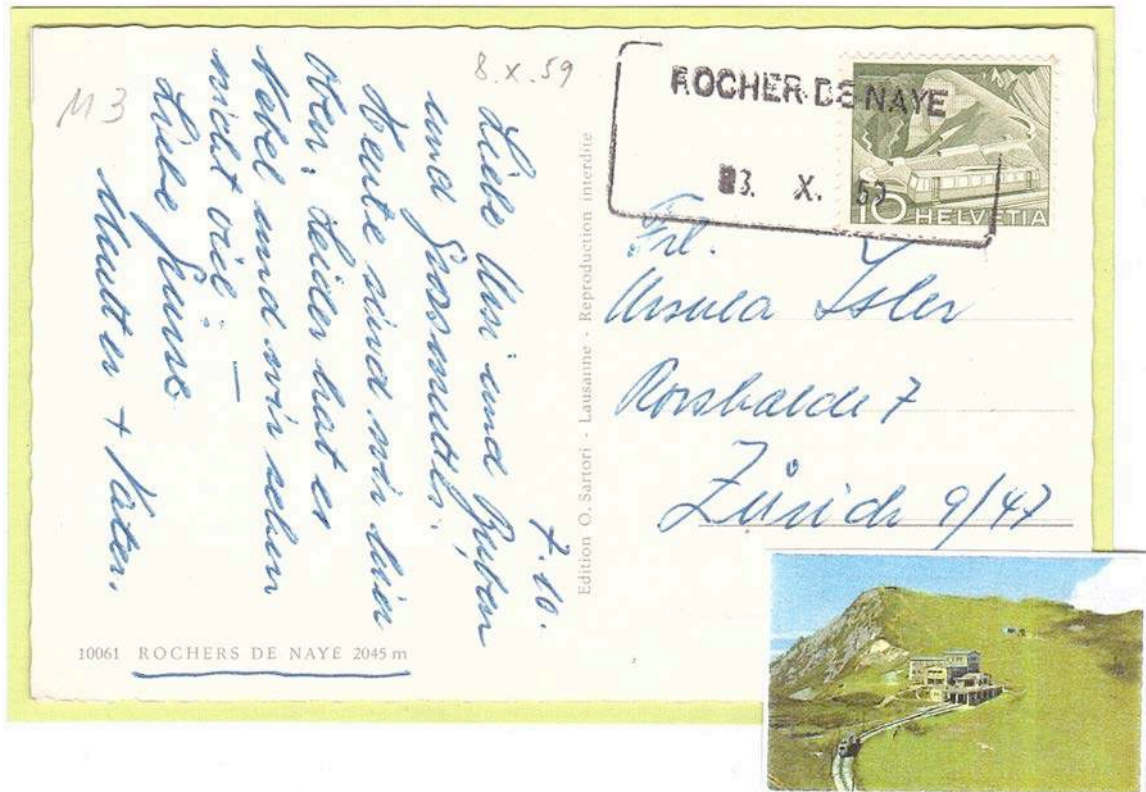 M3
8.X.59
7.10.
Liebe Ursi und
und Grossmutti.
Heute sind wir hier
oben, leider hat es
Nebel und wir sehen
nicht viel. —
Liebe Grüsse
Mutter + Vater.
10061 ROCHERS DE NAYE 2045 m
Edition O. Sartori - Lausanne - Reproduction interdite
ROCHER DE NAYE
X. 59
10 HELVETIA
Frl.
Ursula Isler
7
Zürich 9/47